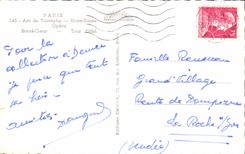 PARIS
140 - Arc de Triomphe - Notre-Dame
Opéra
Sacré-Coeur Tour Eiffel
Pour la
collection à Denise
je pense que tout
va bien
amitiés
Famille Rousseau
Grand Village
Route de Dompierre
La Roche s/Yon
(Vendée)